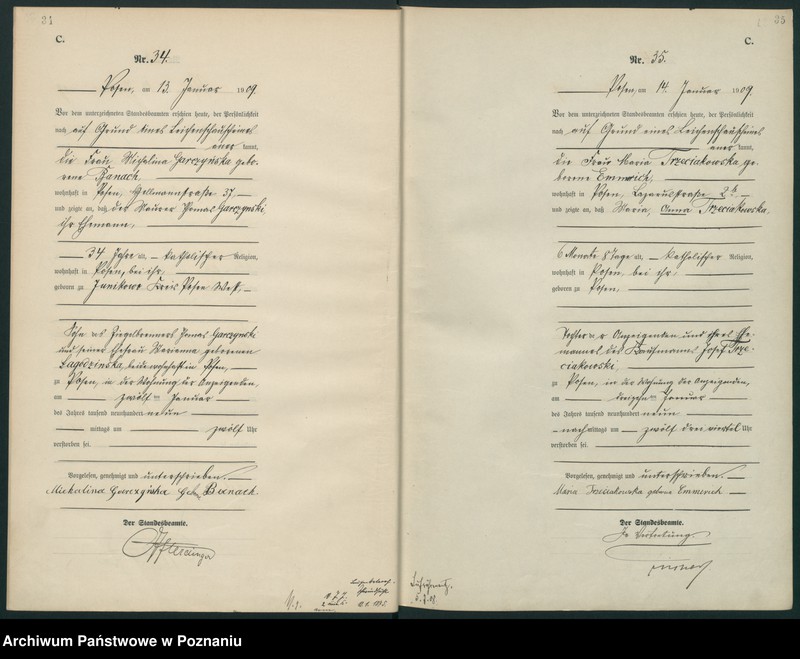 34
C.
Nr. 34.
Posen, am 13. Januar 1909.
Vor dem unterzeichneten Standesbeamten erschien heute, der Persönlichkeit
nach auf Grund eines Leichenschauscheines
aner kannt,
die Frau Michalina Garczynska gebo-
rene Banach
wohnhaft in Posen, Hellmannstraße 37
und zeigte an, daß der Maurer Thomas Garczynski,
ihr Ehemann,
34 Jahre alt, katholischer Religion,
wohnhaft in Posen, bei ihr,
geboren zu Junikowo Kreis Posen West,
Sohn des Ziegelbrenners Thomas Garczynski
und seiner Ehefrau Marianna geborenen
beide wohnhaft in Posen,
zu Posen, in der Wohnung der Anzeigenden,
am zwölften Januar
des Jahres tausend neunhundert neun
mittags um zwölf Uhr
verstorben sei.
Vorgelesen, genehmigt und unterschrieben.
Michalina Garczyńska geb. Banach
Der Standesbeamte.
35
C.
Nr. 35.
Posen, am 14. Januar 1909.
Vor dem unterzeichneten Standesbeamten erschien heute, der Persönlichkeit
nach auf Grund eines Leichenschauscheines
aner kannt,
die Frau Maria Trzeciakowska ge-
borene Emmrich,
wohnhaft in Posen, Lazarusstraße 2b
und zeigte an, daß Maria, Anna Trzeciakowska,
6 Monate 8 Tage alt, katholischer Religion,
wohnhaft in Posen, bei ihr,
geboren zu Posen,
Tochter der Anzeigenden und ihres Ehe-
mannes des Kaufmannes Josef Trze-
ciakowski,
zu Posen, in der Wohnung der Anzeigenden,
am dreizehnten Januar
des Jahres tausend neunhundert neun
nachmittags um zwölf dreiviertel Uhr
verstorben sei.
Vorgelesen, genehmigt und unterschrieben.
Maria Trzeciakowska geborene Emmerich
Der Standesbeamte.
In Vertretung.
Archiwum Państwowe w Poznaniu